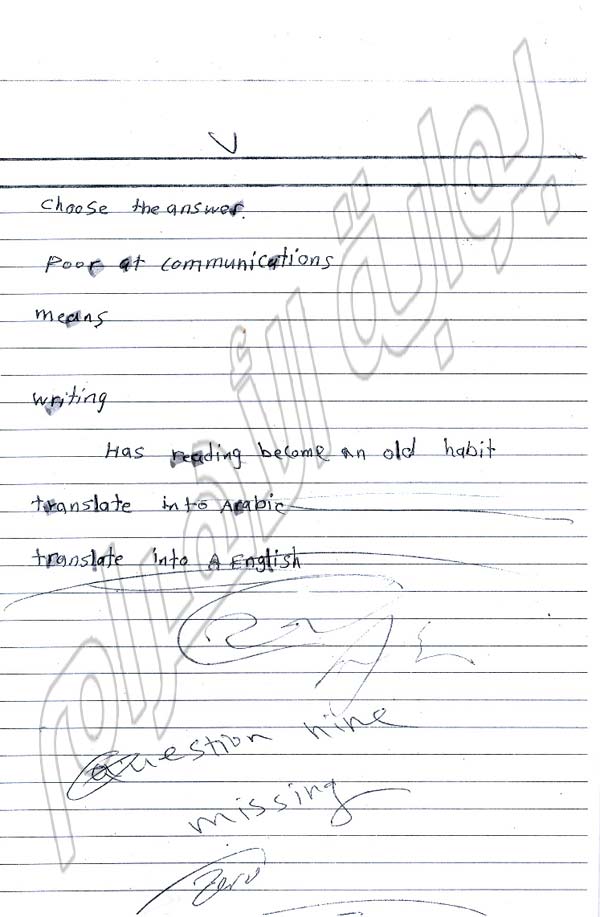 ٧
Choose the answer.
poor at communications
means
writing
Has reading become an old habit
translate into Arabic
translate into A English
Question nine
missing
Zero
بوابة الأهرام